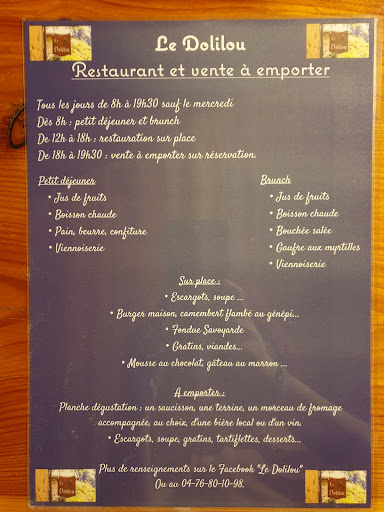 Le Dolilou
Restaurant et vente à emporter
Tous les jours de 8h à 19h30 sauf le mercredi
Dès 8h : petit déjeuner et brunch
De 12h à 18h : restauration sur place
De 18h à 19h30 : vente à emporter sur réservation.
Petit déjeuner
• Jus de fruits
• Boisson chaude
• Pain, beurre, confiture
• Viennoiserie
Brunch
• Jus de fruits
• Boisson chaude
• Bouchée salée
• Gaufre aux myrtilles
• Viennoiserie
Sur place :
• Escargots, soupe ...
• Burger maison, camembert flambé au génépi...
• Fondue Savoyarde
• Gratins, viandes...
• Mousse au chocolat, gâteau au marron ...
A emporter :
Planche dégustation : un saucisson, une terrine, un morceau de fromage
accompagnée, au choix, d'une bière local ou d'un vin.
• Escargots, soupe, gratins, tartiflettes, desserts...
Plus de renseignements sur le Facebook "Le Dolilou"
Ou au 04-76-80-10-98.
Le Dolilou
Le Dolilou
Le Dolilou
Le Dolilou